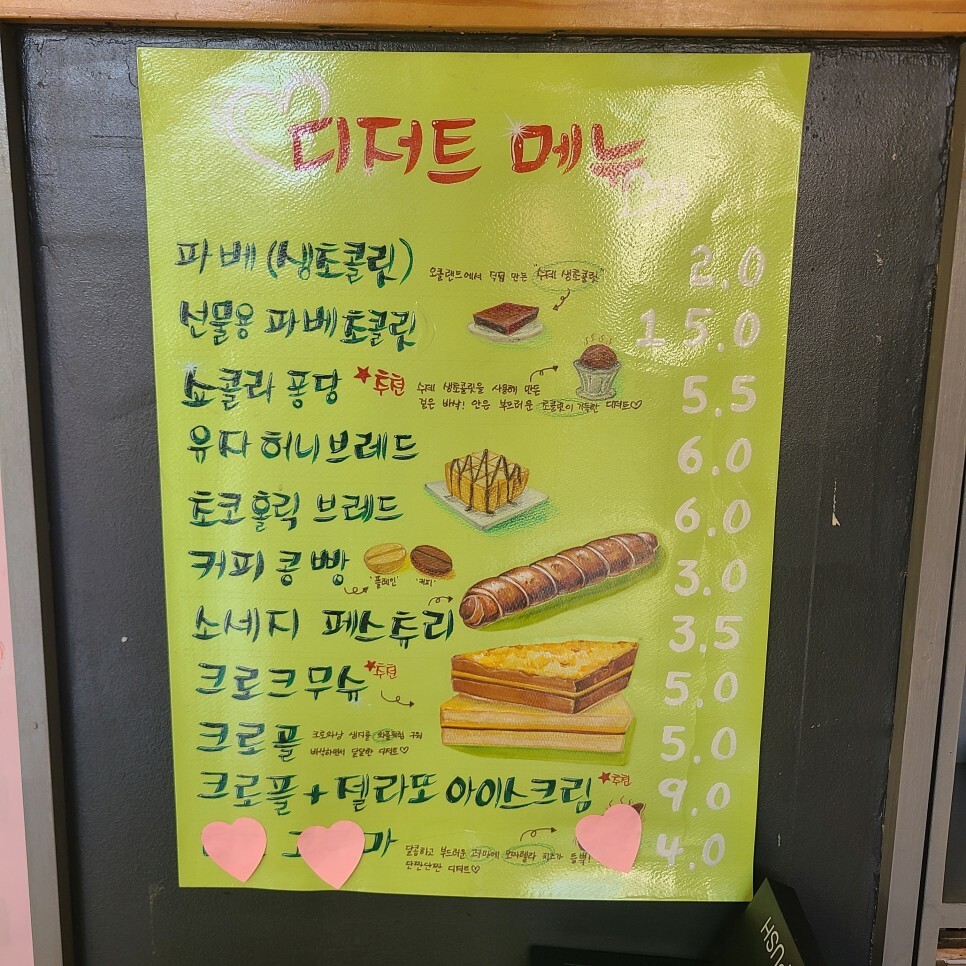 디저트 메뉴
파베 (생초콜릿) 2.0
오클랜드에서 직접 만든 "수제 생초콜릿"
선물용 파베초콜릿 15.0
쇼콜라 퐁당 ★추천 5.5
수제 생초콜릿을 사용해 만든
겉은 바삭! 안은 부드러운 초콜릿이 가득한 디저트♡
유자 허니브레드 6.0
초코홀릭 브레드 6.0
커피콩빵 3.0
'플레인' '커피'
소세지 페스츄리 3.5
크로크무슈 ★추천 5.0
크로플 5.0
크로와상 생지를 와플처럼 구워
바삭하면서 달달한 디저트♡
크로플+젤라또 아이스크림 ★추천 9.0
마 4.0
달콤하고 부드러운 고구마에 모짜렐라 치즈가 듬뿍!
단짠단짠 디저트♡
USH